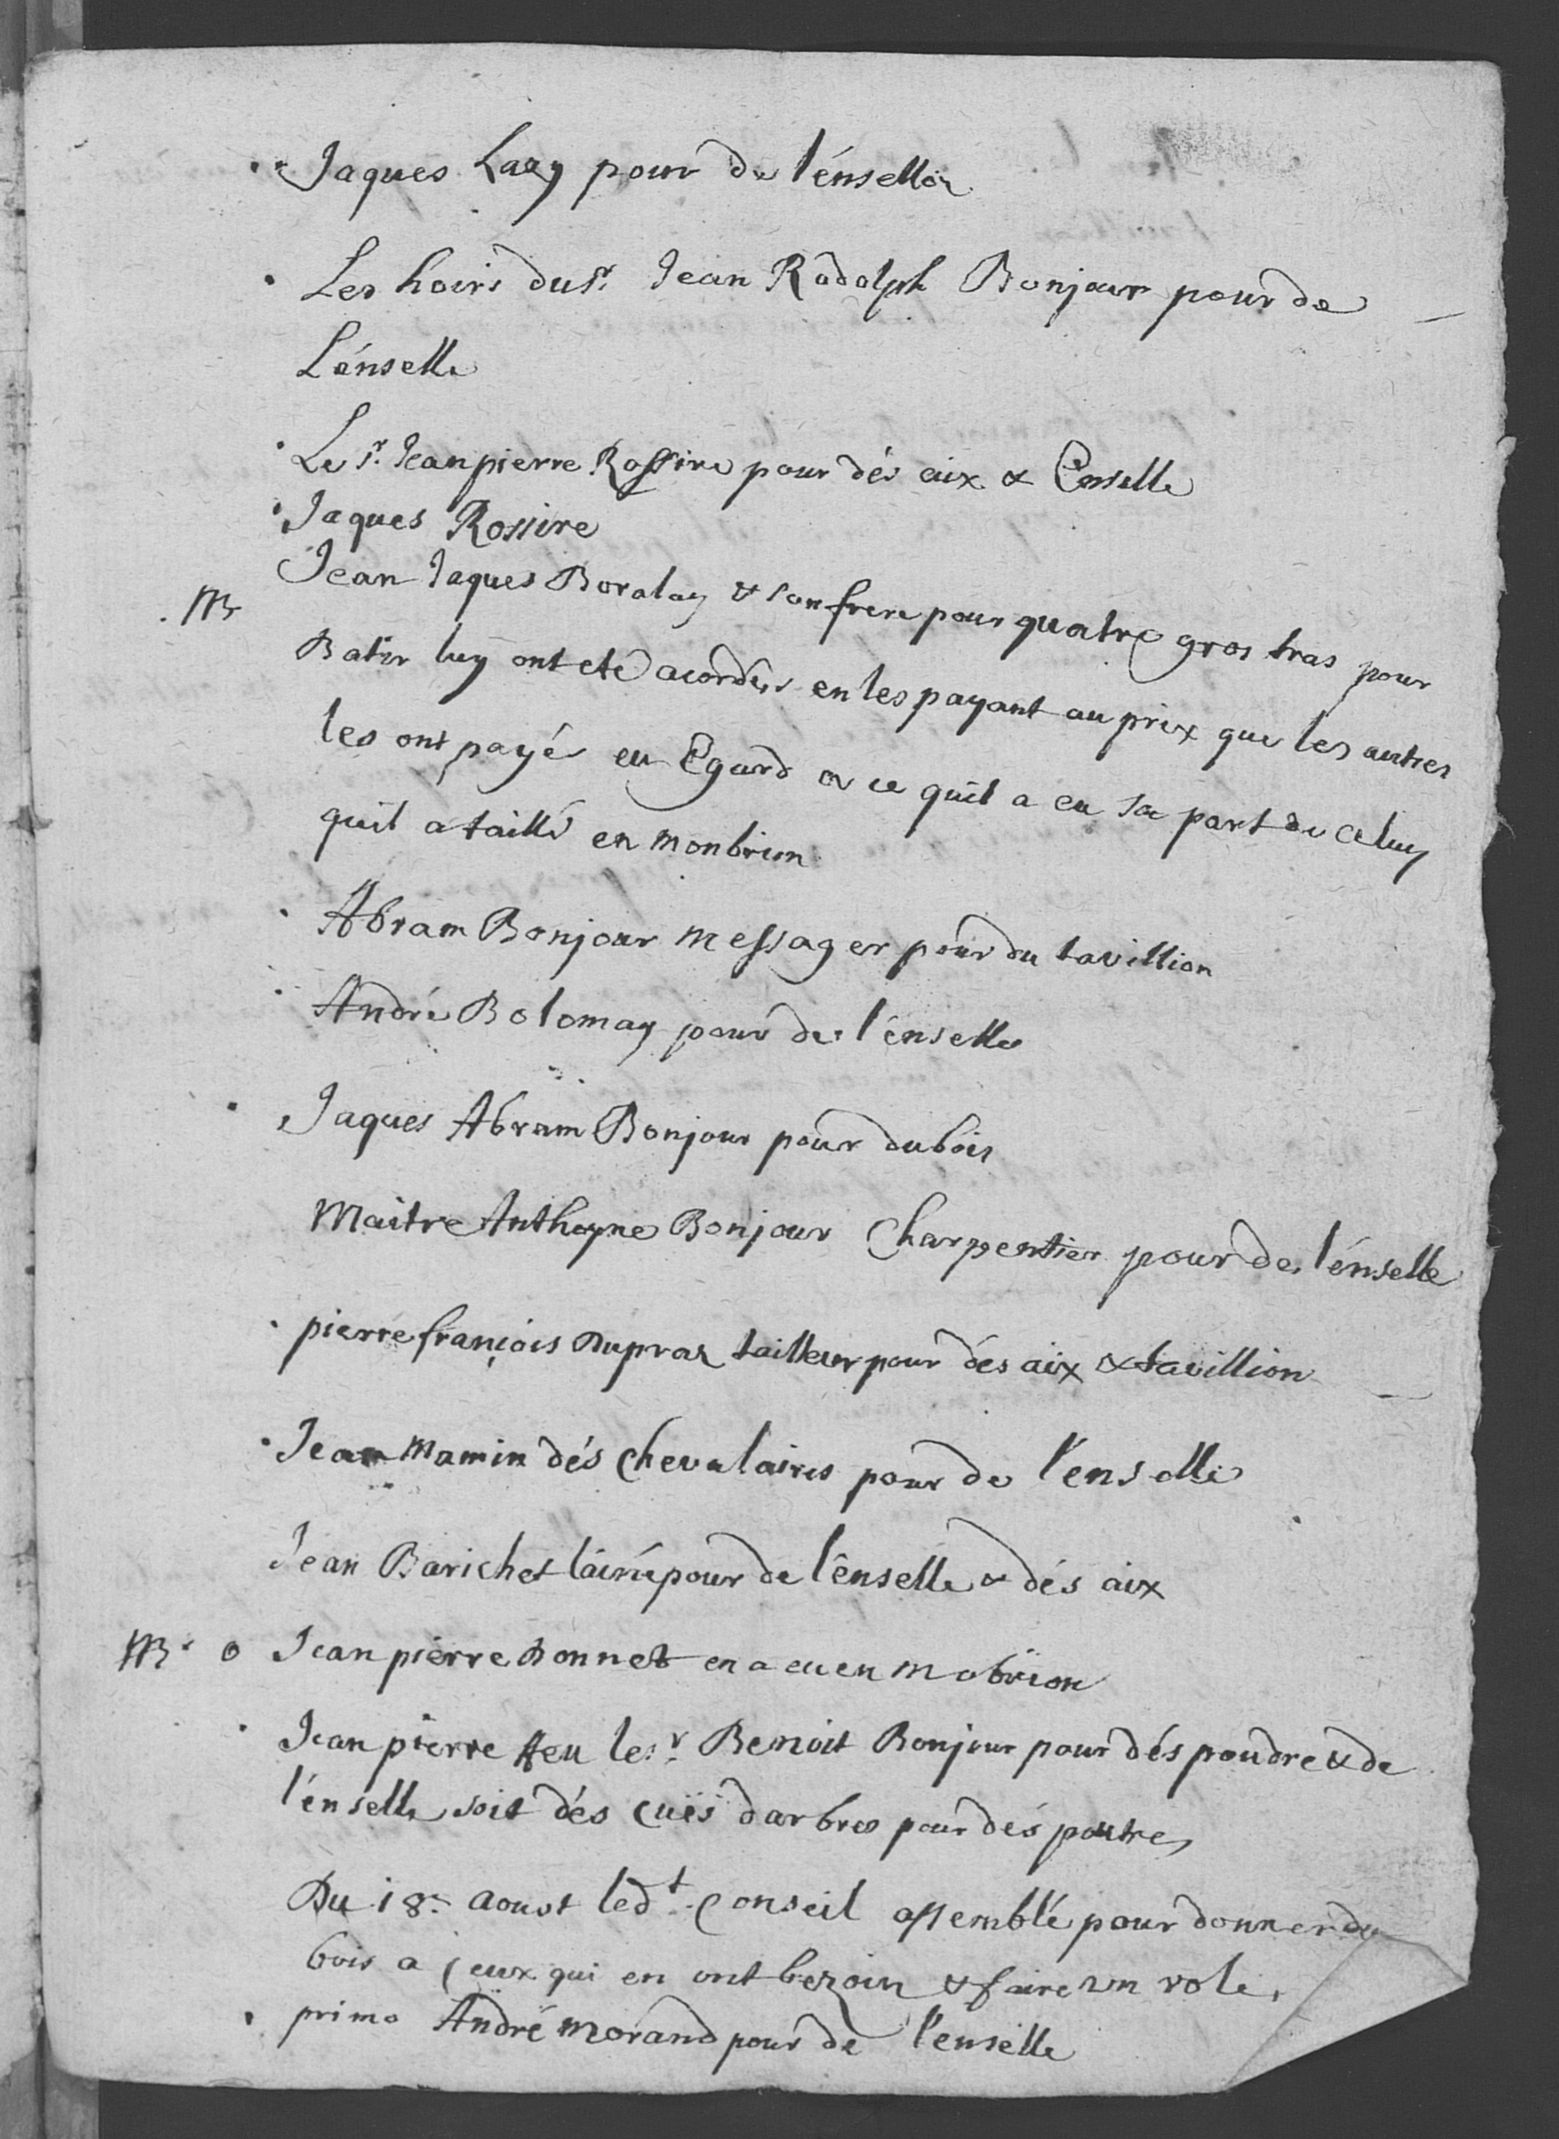 Jaques Lary pour de l'énselle
Les hoirs du Sr. Jean Rodolph Bonjour pour de
L'énselle
Le Sr. Jean pierre Rossire pour dés aix & Enselle
Jaques Rossire
Jean Jaques Boralay & son frere pour quatre gros tras pour
MB
Batir luy ont eté acordés en les payant au prix que les autres
les ont payé eu Egard a ce quil a eu sa part de celuy
quil a taillé en monbrion
Abram Bonjour messager pour du tavillion
André Bolomay pour de l'énselle
Jaques Abram Bonjour pour du bois
Maitre Anthoyne Bonjour Charpentier pour de l'énselle
pierre françois Dupraz tailleur pour dés aix & tavillion
Jean Mamin dés Chevalaires pour de l'enselle
Jean Barichet lainé pour de l'ènselle & dés aix
MB o Jean pierre Bonnet en a eu en mobrion
Jean pierre feu le Sr. Benoit Bonjour pour dés poudre & de
l'énselle soit dés cuës d'arbres pour dés poutres
Du 18e aoust ledt Conseil assemblé pour donner du
bois a ceux qui en ont bezoin & faire un role,
primo André morand pour de l'enselle